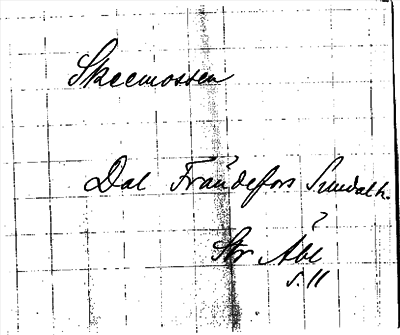 Skeemossen
Dal Frändefors Sundal h.
?
Str Åbl
s. 11